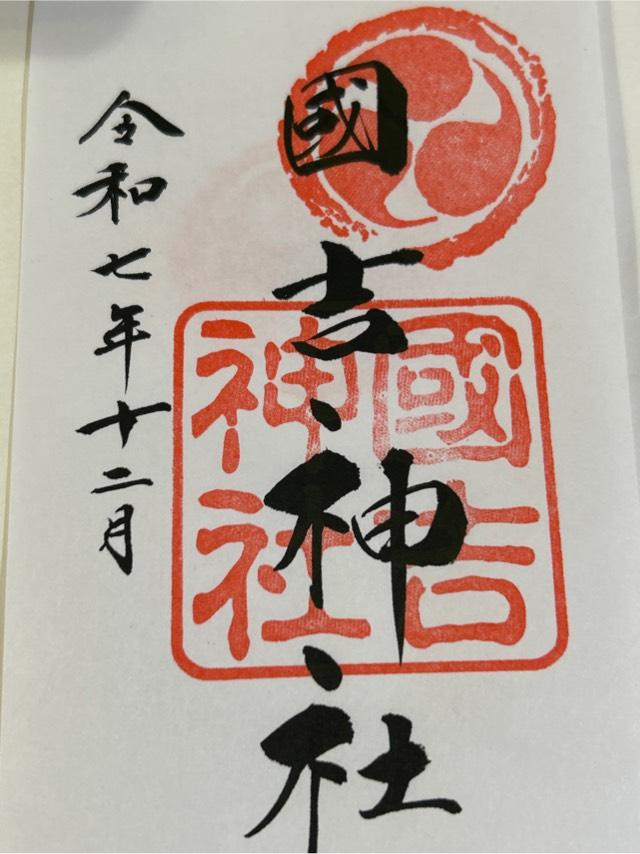 國吉神社
國吉
神社
令和七年十二月